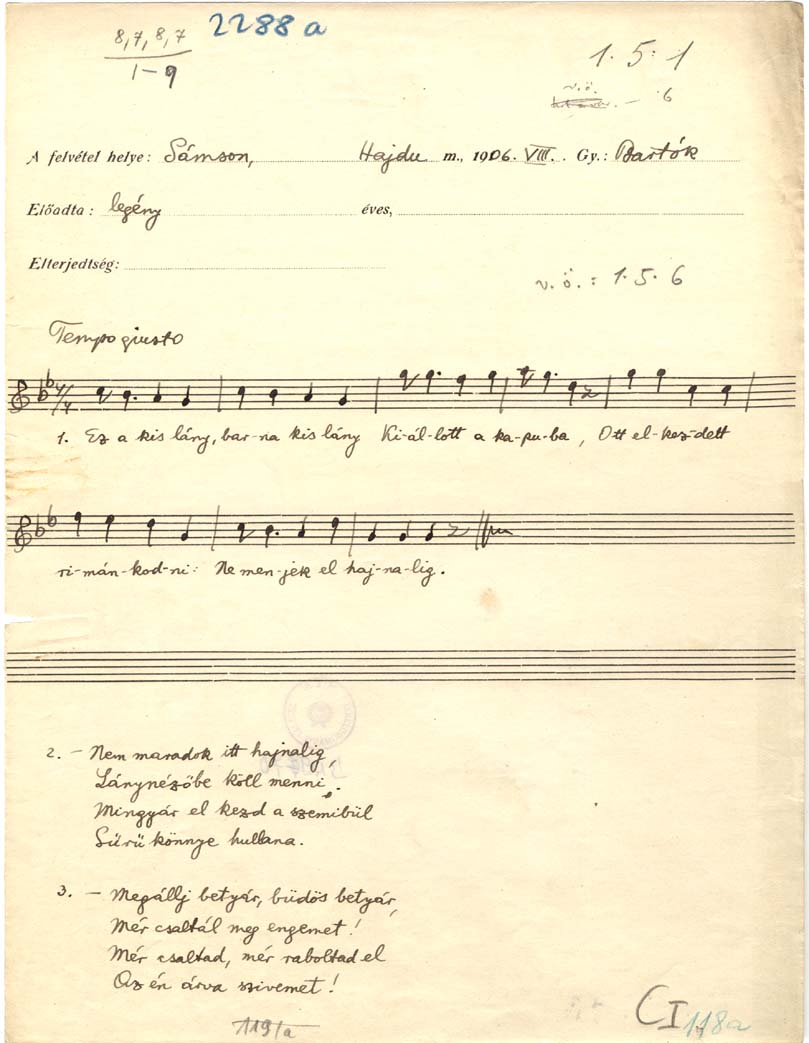 8,7,8,7
2288 a
1-9
1. 5. 1
v.ö. 6
A felvétel helye: Sámson, Hajdu m., 1906. VIII. Gy.: Bartók
Előadta: legény éves,
Elterjedtség:
v.ö.: 1. 5. 6
Tempo giusto
4/4
1. Ez a kis lány, bar-na kis lány Ki-ál-lott a ka-pu-ba, Ott el-kez-dett
ri-mán-kod-ni: Ne men-jek el haj-na-lig.
2. – Nem maradok itt hajnalig,
Lánynézőbe köll menni.
Mingyár el kezd a szemibül
Sűrü könnye hullana.
3. – Megállj betyár, büdös betyár,
Mér csaltál meg engemet!
Mér csaltad, mér raboltad el
Az én árva szivemet!
119/a
CI 118a